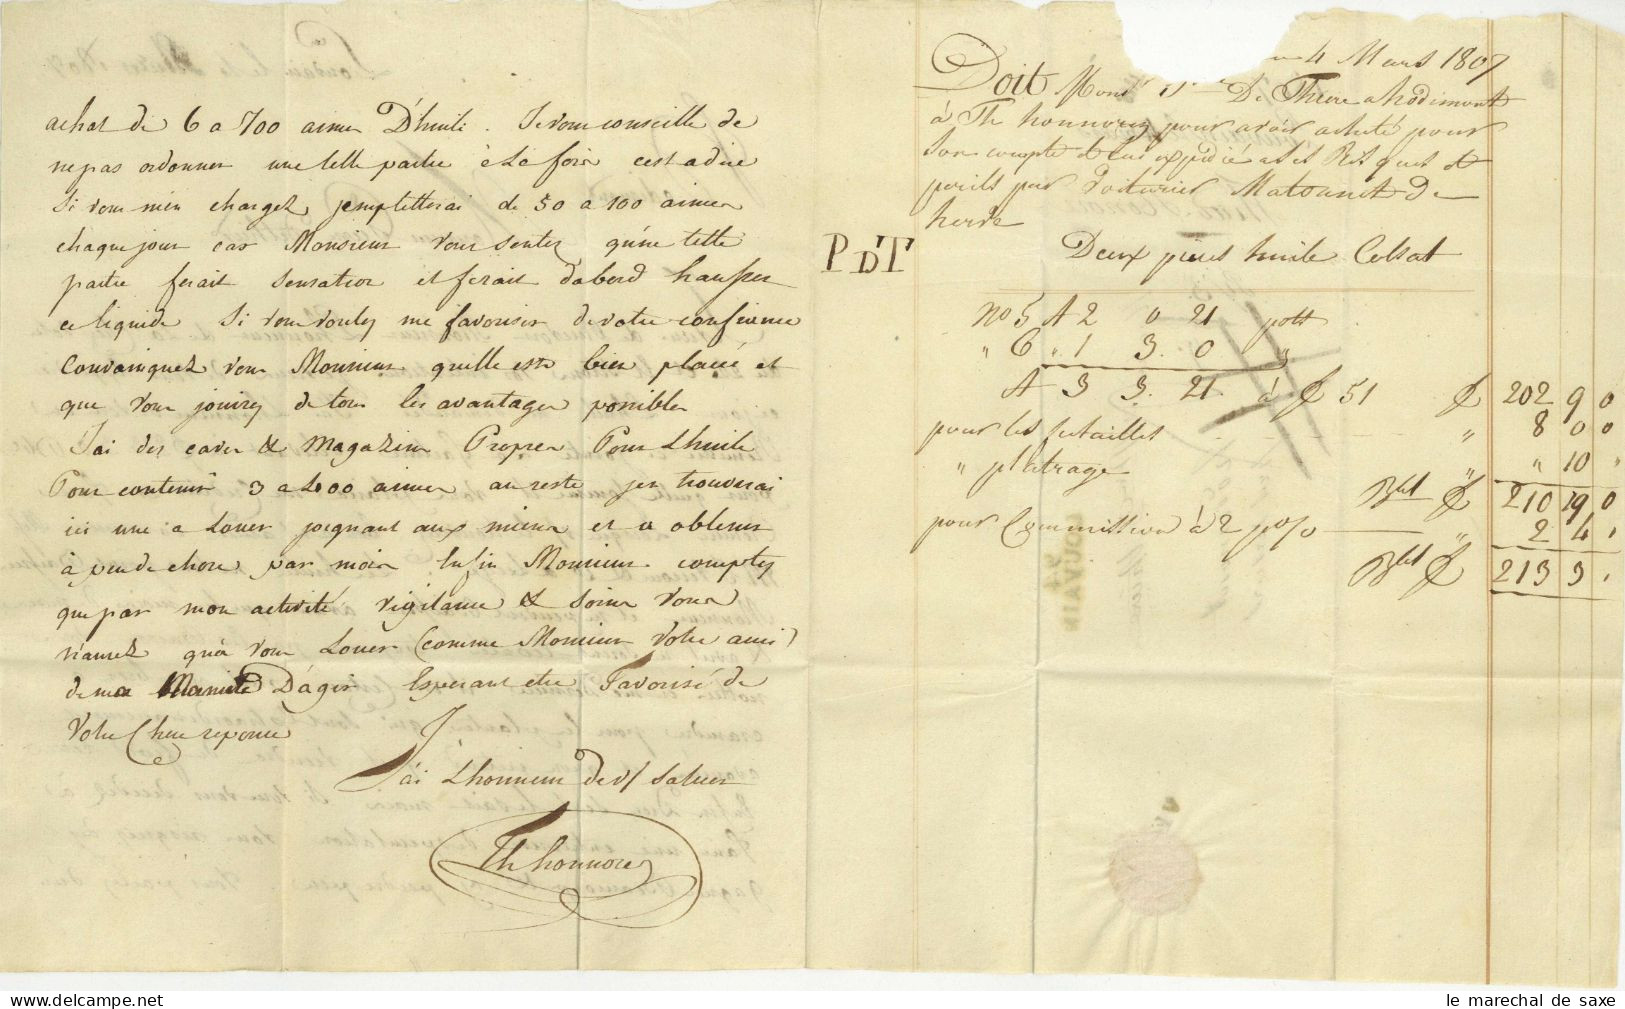 achat de 6 a 700 aimes D'huile. Je vous conseille de
ne pas ordonner une telle partie à la fois cest a dire
Si vous m'en chargez jempletterai de 50 a 100 aimes
chaque jour car Monsieur vous sentez qu'une telle
partie ferait sensation et ferait dabord hausser
ce liquide Si vous voulez me favoriser de votre confiance
Convainquez vous Monsieur quelle est bien placée et
que vous jouirez de tous les avantages possibles
J'ai des caves & Magazins Propres Pour L'huile
Pour contenir 3 a 4000 aimes au reste jen trouverai
ici une a Louer joignant aux miens et a obtenir
à peu de chose par mois Enfin Monsieur comptez
que par mon activité vigilance & soins vous
n'aurez qu'à vous Louer (comme Monsieur Votre ami)
de ma Maniere D'agir Esperant etre Favorisé de
Votre Chere reponse
J'ai L'honneur de v/ Saluer
Th honnorez
PDT
4 Mars 1807
Doit Monsr De Thiere a hodimont
à Th honnorez pour avoir acheté pour
Son compte et lui expédié a ses Risques et
perils par Voiturier Matonnet de
herve
Deux pieces huile Colsat
No 5 A 2 0 21 pott
" 6 " 1 3. 0 "
A 3 3. 21. à £ 51 £ 202 9 0
pour les futailles " 8 0 0
" platrage " " 10 "
Bbt £ 210 19 0
pour Commission à 2 po/o " 2 4 "
Bbt £ 213 3 "
94
LOUVAIN
le marechal de saxe